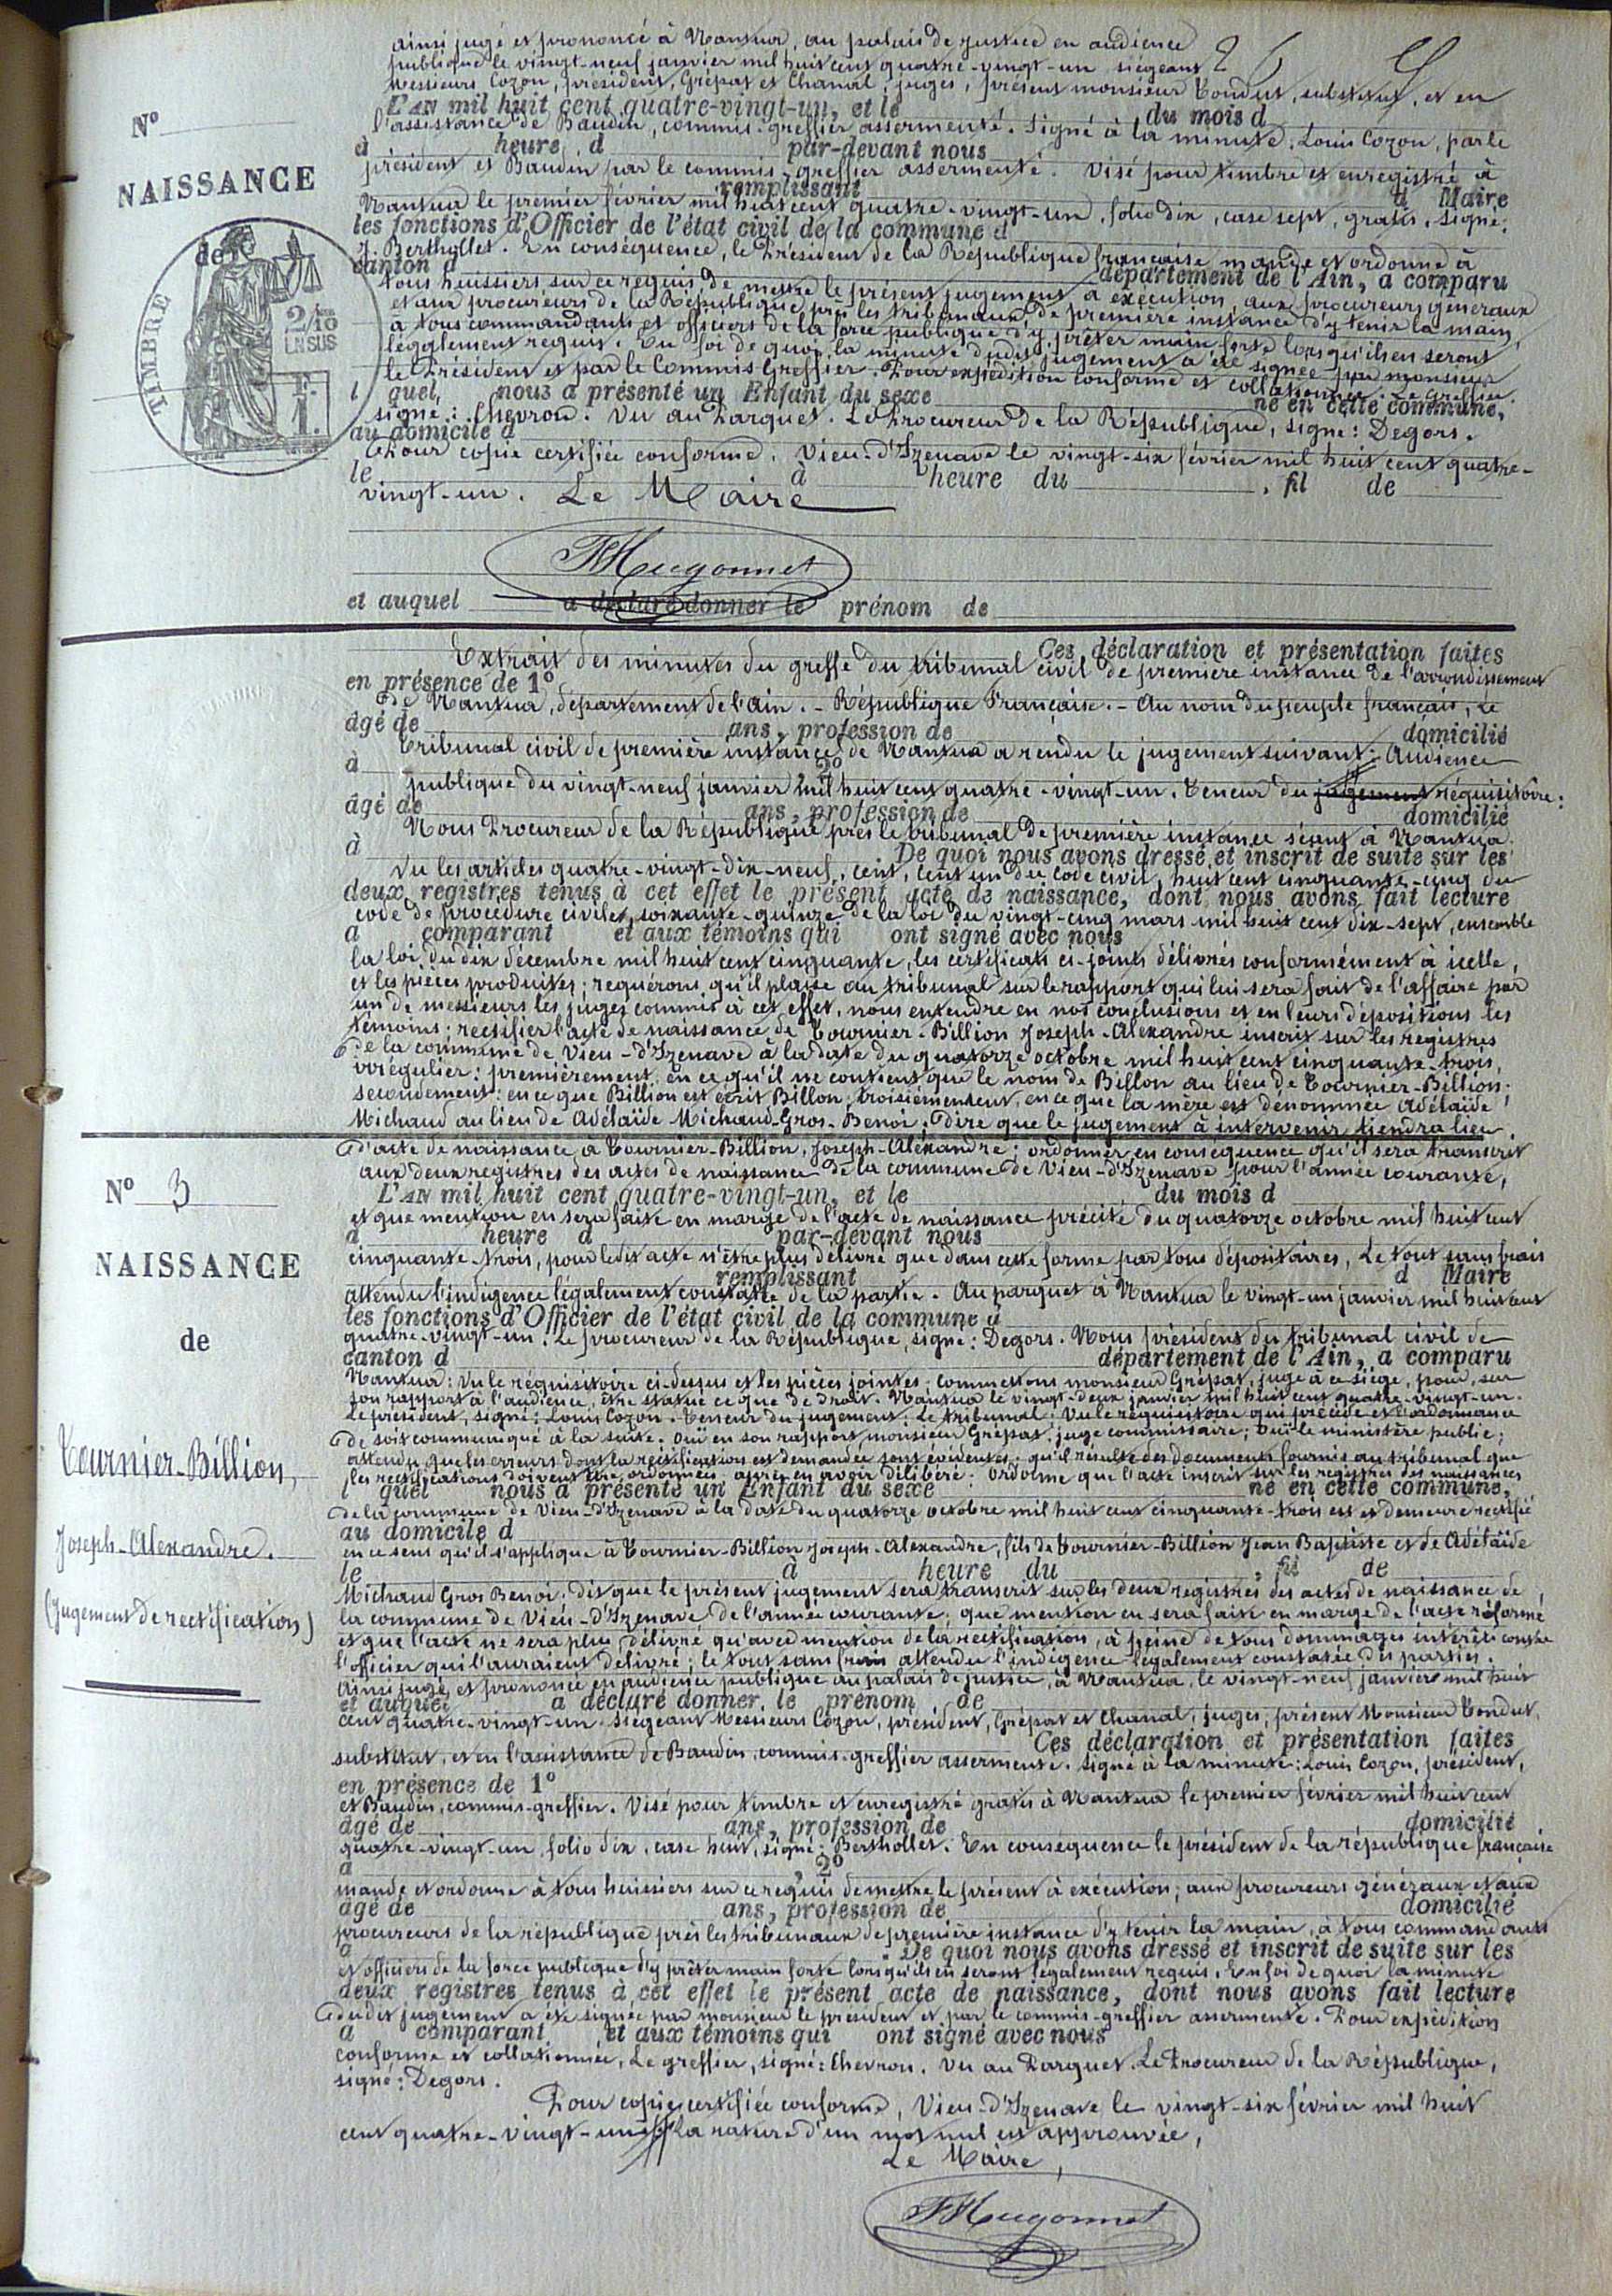 ainsi jugé et prononcé à Nantua, au palais de justice en audience
publique le vingt-neuf janvier mil huit cent quatre-vingt-un siégeant
Messieurs Cozon, président, Grépat et Chanal, juges, présent monsieur Tondut, substitut, et en
L'AN mil huit cent quatre-vingt-un, et le du mois d
Nº
l'assistance de Baudin, commis-greffier assermenté. Signé à la minute: Louis Cozon, par le
à heure d par-devant nous
président et Baudin par le commis-greffier assermenté. Visé pour timbre et enregistré à
NAISSANCE
remplissant d Maire
Nantua le premier février mil huit cent quatre-vingt-un, folio dix, case sept, gratis, signé:
les fonctions d'Officier de l'état civil de la commune d
de
J. Bertholles. En conséquence, le Président de la République française mande et ordonne à
canton d département de l'Ain, a comparu
tous huissiers sur ce requis de mettre le présent jugement à exécution, aux procureurs généraux
et aux procureurs de la République près les tribunaux de première instance d'y tenir la main,
à tous commandants et officiers de la force publique d'y prêter main forte lorsqu'ils en seront
légalement requis. En foi de quoi la minute dudit jugement a été signée par monsieur
le Président et par le Commis Greffier. Pour expédition conforme et collationnée. Le Greffier.
TIMBRE
2/10 EN SUS
1 F.
l quel, nous a présenté un Enfant du sexe né en cette commune,
signé: Chevron. Vu au Parquet. Le Procureur de la République, signé: Degors.
au domicile d
Pour copie certifiée conforme. Vieu-d'Izenave le vingt-six février mil huit cent quatre-
le à heure du , fil de
vingt-un. Le Maire
FHugonnet
et auquel a déclaré donner le prénom de
Ces déclaration et présentation faites
Extrait des minutes du greffe du tribunal civil de première instance de l'arrondissement
en présence de 1º
de Nantua, département de l'Ain. - République Française. - Au nom du peuple français, Le
âgé de ans, profession de domicilié
Tribunal civil de première instance de Nantua a rendu le jugement suivant: Audience
à 2º
publique du vingt-neuf janvier mil huit cent quatre-vingt-un. Teneur du jugement réquisitoire:
âgé de ans, profession de domicilié
Nous Procureur de la République près le tribunal de première instance séant à Nantua.
à De quoi nous avons dressé et inscrit de suite sur les
Vu les articles quatre-vingt-dix-neuf, cent, cent un du code civil, huit cent cinquante-cinq du
deux registres tenus à cet effet le présent acte de naissance, dont nous avons fait lecture
code de procédure civile, soixante-quinze de la loi du vingt-cinq mars mil huit cent dix-sept, ensemble
a comparant et aux témoins qui ont signé avec nous
la loi du dix décembre mil huit cent cinquante, les certificats ci-joints délivrés conformément à icelle,
et les pièces produites; requérons qu'il plaise au tribunal sur le rapport qui lui sera fait de l'affaire par
un de messieurs les juges commis à cet effet, nous entendre en nos conclusions et en leurs dépositions les
témoins: rectifier l'acte de naissance de Tournier-Billion Joseph-Alexandre inscrit sur les registres
de la commune de Vieu-d'Izenave à la date du quatorze octobre mil huit cent cinquante-trois,
irrégulier: premièrement: en ce qu'il ne contient que le nom de Billon au lieu de Tournier-Billion;
secondement: en ce que Billion est écrit Billon; troisièmement, en ce que la mère est dénommée Adélaïde
Michaud au lieu de Adélaïde Michaud-Gros-Benoi. Dire que le jugement à intervenir tiendra lieu
d'acte de naissance à Tournier-Billion, Joseph-Alexandre; ordonner en conséquence qu'il sera transcrit
aux deux registres des actes de naissance de la commune de Vieu-d'Izenave pour l'année courante,
Nº 3
L'AN mil huit cent quatre-vingt-un, et le du mois d
et que mention en sera faite en marge de l'acte de naissance précité du quatorze octobre mil huit cent
à heure d par-devant nous
NAISSANCE
cinquante-trois, pour ledit acte n'être plus délivré que dans cette forme par tous dépositaires, Le tout sans frais
remplissant d Maire
attendu l'indigence légalement constatée de la partie. Au parquet à Nantua le vingt-un janvier mil huit cent
les fonctions d'Officier de l'état civil de la commune d
de
quatre-vingt-un. Le procureur de la République, signé: Degors. Nous président du tribunal civil de
canton d département de l'Ain, a comparu
Nantua: Vu le réquisitoire ci-dessus et les pièces jointes; commettons monsieur Grépat, juge à ce siège, pour, sur
son rapport à l'audience, être statué ce que de droit. Nantua le vingt-deux janvier mil huit cent quatre-vingt-un.
Le président, signé: Louis Cozon. Teneur du jugement: Le tribunal; Vu le réquisitoire qui précède et l'ordonnance
de soit communiqué à la suite. Ouï en son rapport monsieur Grépat, juge commissaire; Ouï le ministère public;
Tournier-Billion,
attendu que les erreurs dont la rectification est demandée sont évidentes; qu'il résulte des documents fournis au tribunal que
les rectifications doivent être ordonnées; après en avoir délibéré: Ordonne que l'acte inscrit sur les registres des naissances
l quel nous a présenté un Enfant du sexe né en cette commune,
de la commune de Vieu-d'Izenave à la date du quatorze octobre mil huit cent cinquante-trois est et demeure rectifié
au domicile d
Joseph-Alexandre.
en ce sens qu'il s'applique à Tournier-Billion Joseph-Alexandre, fils de Tournier-Billion Jean Baptiste et de Adélaïde
le à heure du , fil de
Michaud Gros Benoi; dit que le présent jugement sera transcrit sur les deux registres des actes de naissance de
(Jugement de rectification)
la commune de Vieu-d'Izenave de l'année courante; que mention en sera faite en marge de l'acte réformé
et que l'acte ne sera plus délivré qu'avec mention de la rectification, à peine de tous dommages intérêts contre
l'officier qui l'auraient délivré; le tout sans frais attendu l'indigence légalement constatée des parties.
Ainsi jugé et prononcé en audience publique au palais de justice, à Nantua, le vingt-neuf janvier mil huit
et auquel a déclaré donner le prénom de
cent quatre-vingt-un. Siégeant Messieurs Cozon, président, Grépat et Chanal, juges; présent Monsieur Tondut,
Ces déclaration et présentation faites
substitut, et en l'assistance de Baudin, commis-greffier assermenté. Signé à la minute: Louis Cozon, président,
en présence de 1º
et Baudin, commis-greffier. Visé pour timbre et enregistré gratis à Nantua le premier février mil huit cent
âgé de ans, profession de domicilié
quatre-vingt-un, folio dix, case huit, signé: Bertholles. En conséquence le président de la république française
à 2º
mande et ordonne à tous huissiers sur ce requis de mettre le présent à exécution; aux procureurs généraux et aux
âgé de ans, profession de domicilié
procureurs de la république près les tribunaux de première instance d'y tenir la main, à tous commandants
à . De quoi nous avons dressé et inscrit de suite sur les
et officiers de la force publique d'y prêter main forte lorsqu'ils en seront légalement requis. En foi de quoi la minute
deux registres tenus à cet effet le présent acte de naissance, dont nous avons fait lecture
dudit jugement a été signée par monsieur le président et par le commis-greffier assermenté. Pour expédition
a comparant et aux témoins qui ont signé avec nous
conforme et collationnée, Le greffier, signé: Chevron. Vu au Parquet. Le Procureur de la République,
signé: Degors.
Pour copie certifiée conforme, Vieu-d'Izenave le vingt-six février mil huit
cent quatre-vingt-un. La rature d'un mot nul est approuvée,
Le Maire,
FHugonnet